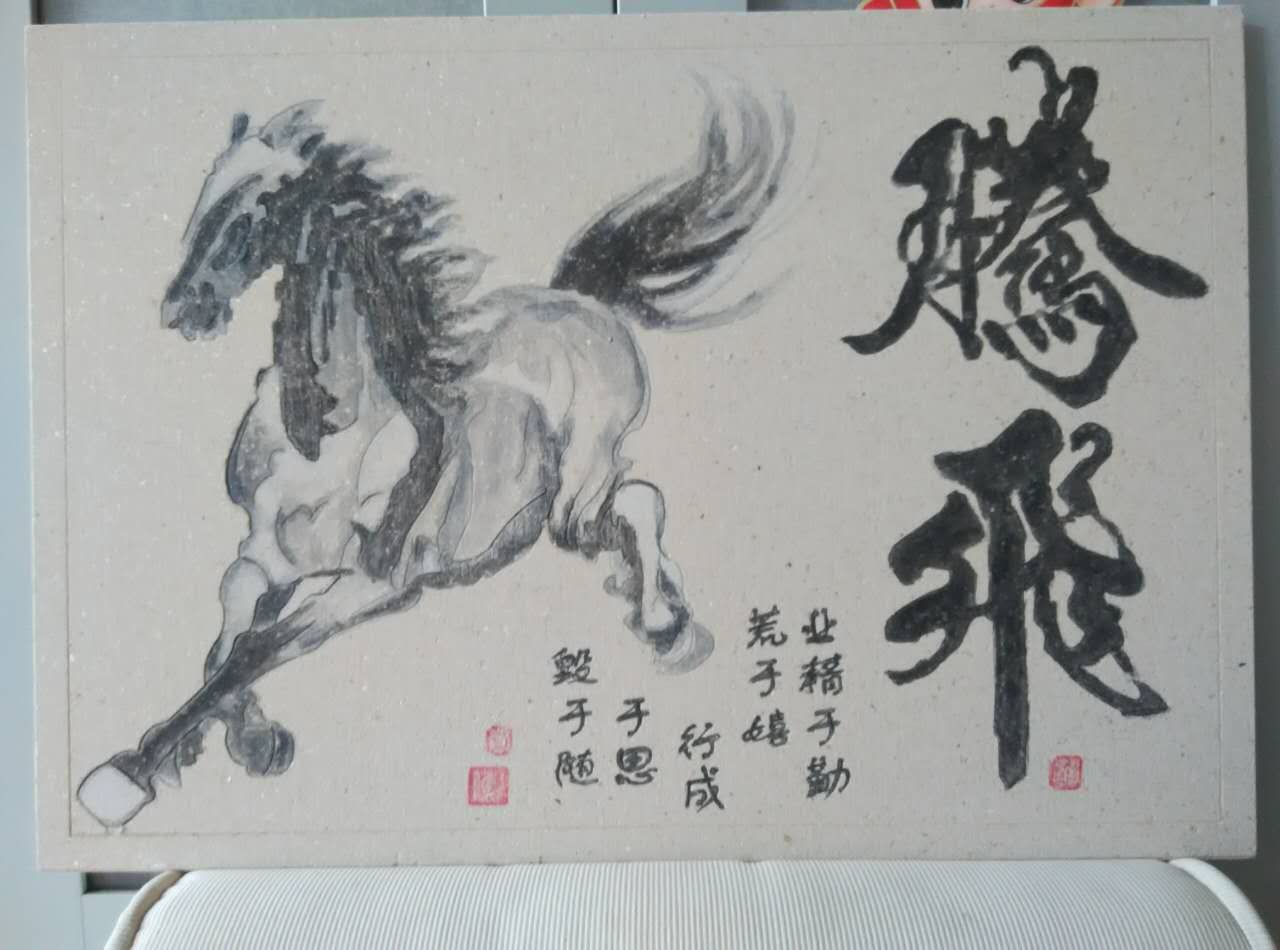 騰飛
业精于勤
荒于嬉
行成
于思
毁于随